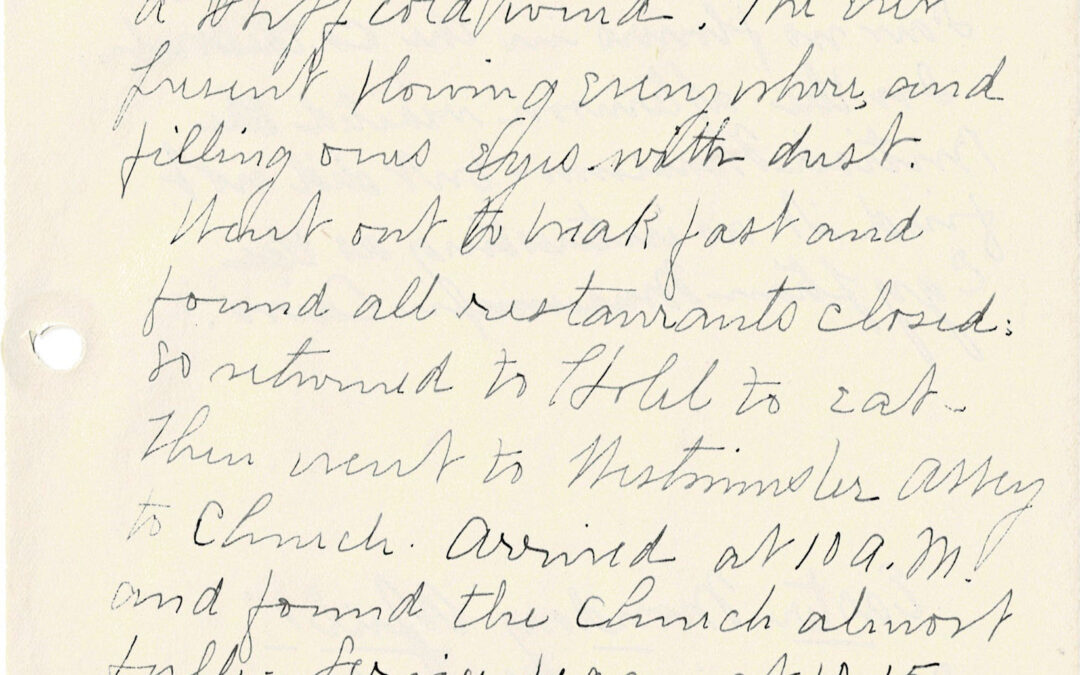 a stiff cold wind. The ever
present blowing everywhere, and
filling ones Eyes with dust.
Went out to break fast and
found all restaurants closed;
so returned to Hotel to eat-
Then went to Westminster Abbey
to Church. Arrived at 10 A.M.
and found the Church almost
full- Service began at 10.15